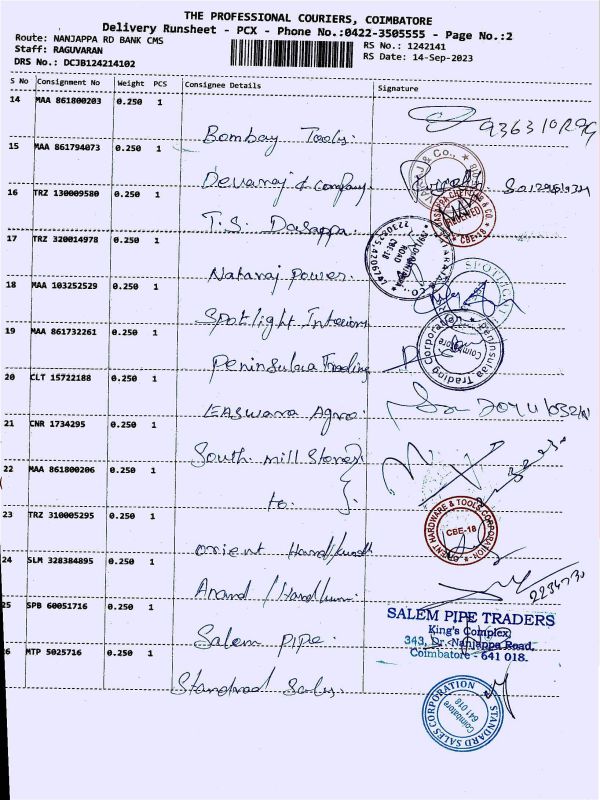 THE PROFESSIONAL COURIERS, COIMBATORE
Delivery Runsheet - PCX - Phone No.:0422-3505555 - Page No.:2
Route: NANJAPPA RD BANK CMS
RS No.: 1242141
Staff: RAGUVARAN
RS Date: 14-Sep-2023
DRS No.: DCJB124214102
S No Consignment No Weight PCS Consignee Details Signature
14 MAA 861800203 0.250 1
Bombay Tools.
15 MAA 861794073 0.250 1
Devaraj & company
16 TRZ 130009580 0.250 1
T.S. Dasappa.
17 TRZ 320014978 0.250 1
Nataraj power.
18 MAA 103252529 0.250 1
Spotlight Interiors
SPOTLIGHT
19 MAA 861732261 0.250 1
Peninsulaa Trading
Peninsulaa Trading Corporation
Coimbatore
20 CLT 15722188 0.250 1
EASwara Agro.
21 CNR 1734295 0.250 1
South mill Stores
22 MAA 861800206 0.250 1
to.
23 TRZ 310005295 0.250 1
orient Hard/
ORIENT HARDWARE & TOOLS CORPORATION
CBE-18
24 SLM 328384895 0.250 1
Anand /
25 SPB 60051716 0.250 1
Salem pipe.
SALEM PIPE TRADERS
King's Complex
343, Dr. Nanjappa Road,
Coimbatore - 641 018.
26 MTP 5025716 0.250 1
Standrad Sales.
STANDARD SALES CORPORATION
Coimbatore
641 018